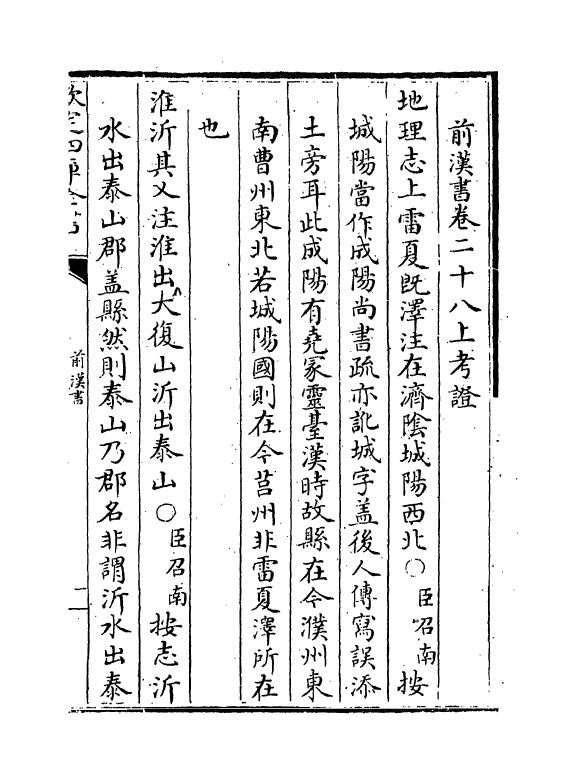 前漢書卷二十八上考證
地理志上雷夏既澤注在濟陰城陽西北〇臣召南按
城陽當作成陽尚書疏亦訛城字盖後人傳寫誤添
土旁耳此成陽有堯冢靈臺漢時故縣在今濮州東
南曹州東北若城陽國則在今莒州非雷夏澤所在
也
淮沂其乂注淮出大復山沂出泰山〇臣召南按志沂
水出泰山郡盖縣然則泰山乃郡名非謂沂水出泰
欽定四庫全書
前漢書
二